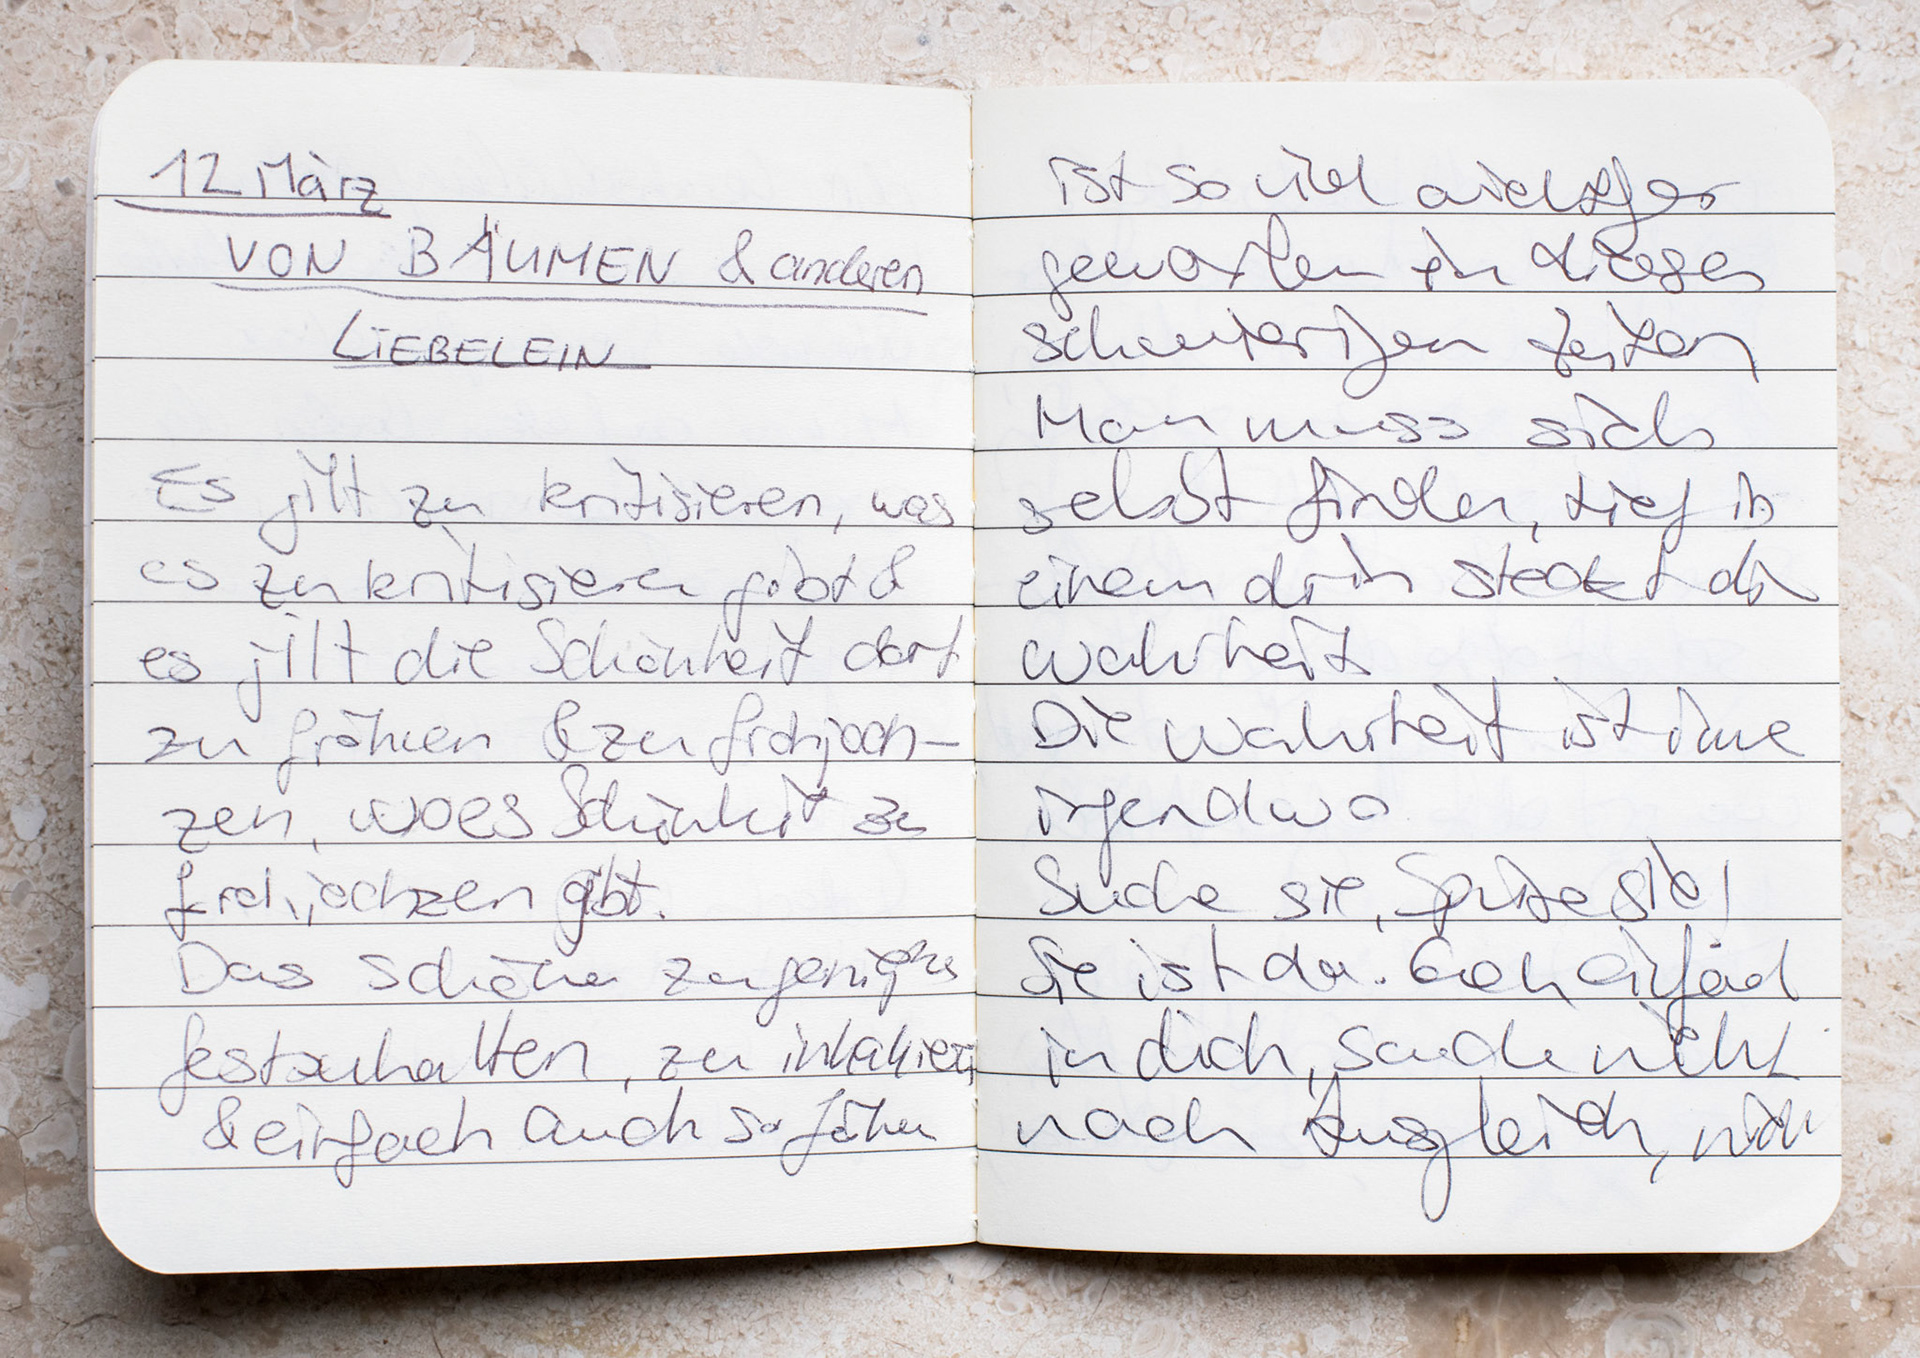 12 März
VON BÄUMEN & anderen
LIEBELEIN
Es gilt zu kritisieren, was
es zu kritisieren gibt &
es gilt die Schönheit dort
zu fröhnen & zu frohjoch-
zen, wo es Schönheit zu
frohjochzen gibt.
Das Schöne zu genießen
festzuhalten, zu inhalieren
& einfach auch so
ist so viel wichtiger
geworden in diesen
schwierigen Zeiten
Man muss sich
selbst finden, tief in
einem drin steckt die
Wahrheit
Die Wahrheit ist
irgendwo
Suche sie, Spüre sie!
Sie ist da. Geh einfach
in dich, suche nicht
nach Ausgleich, nicht